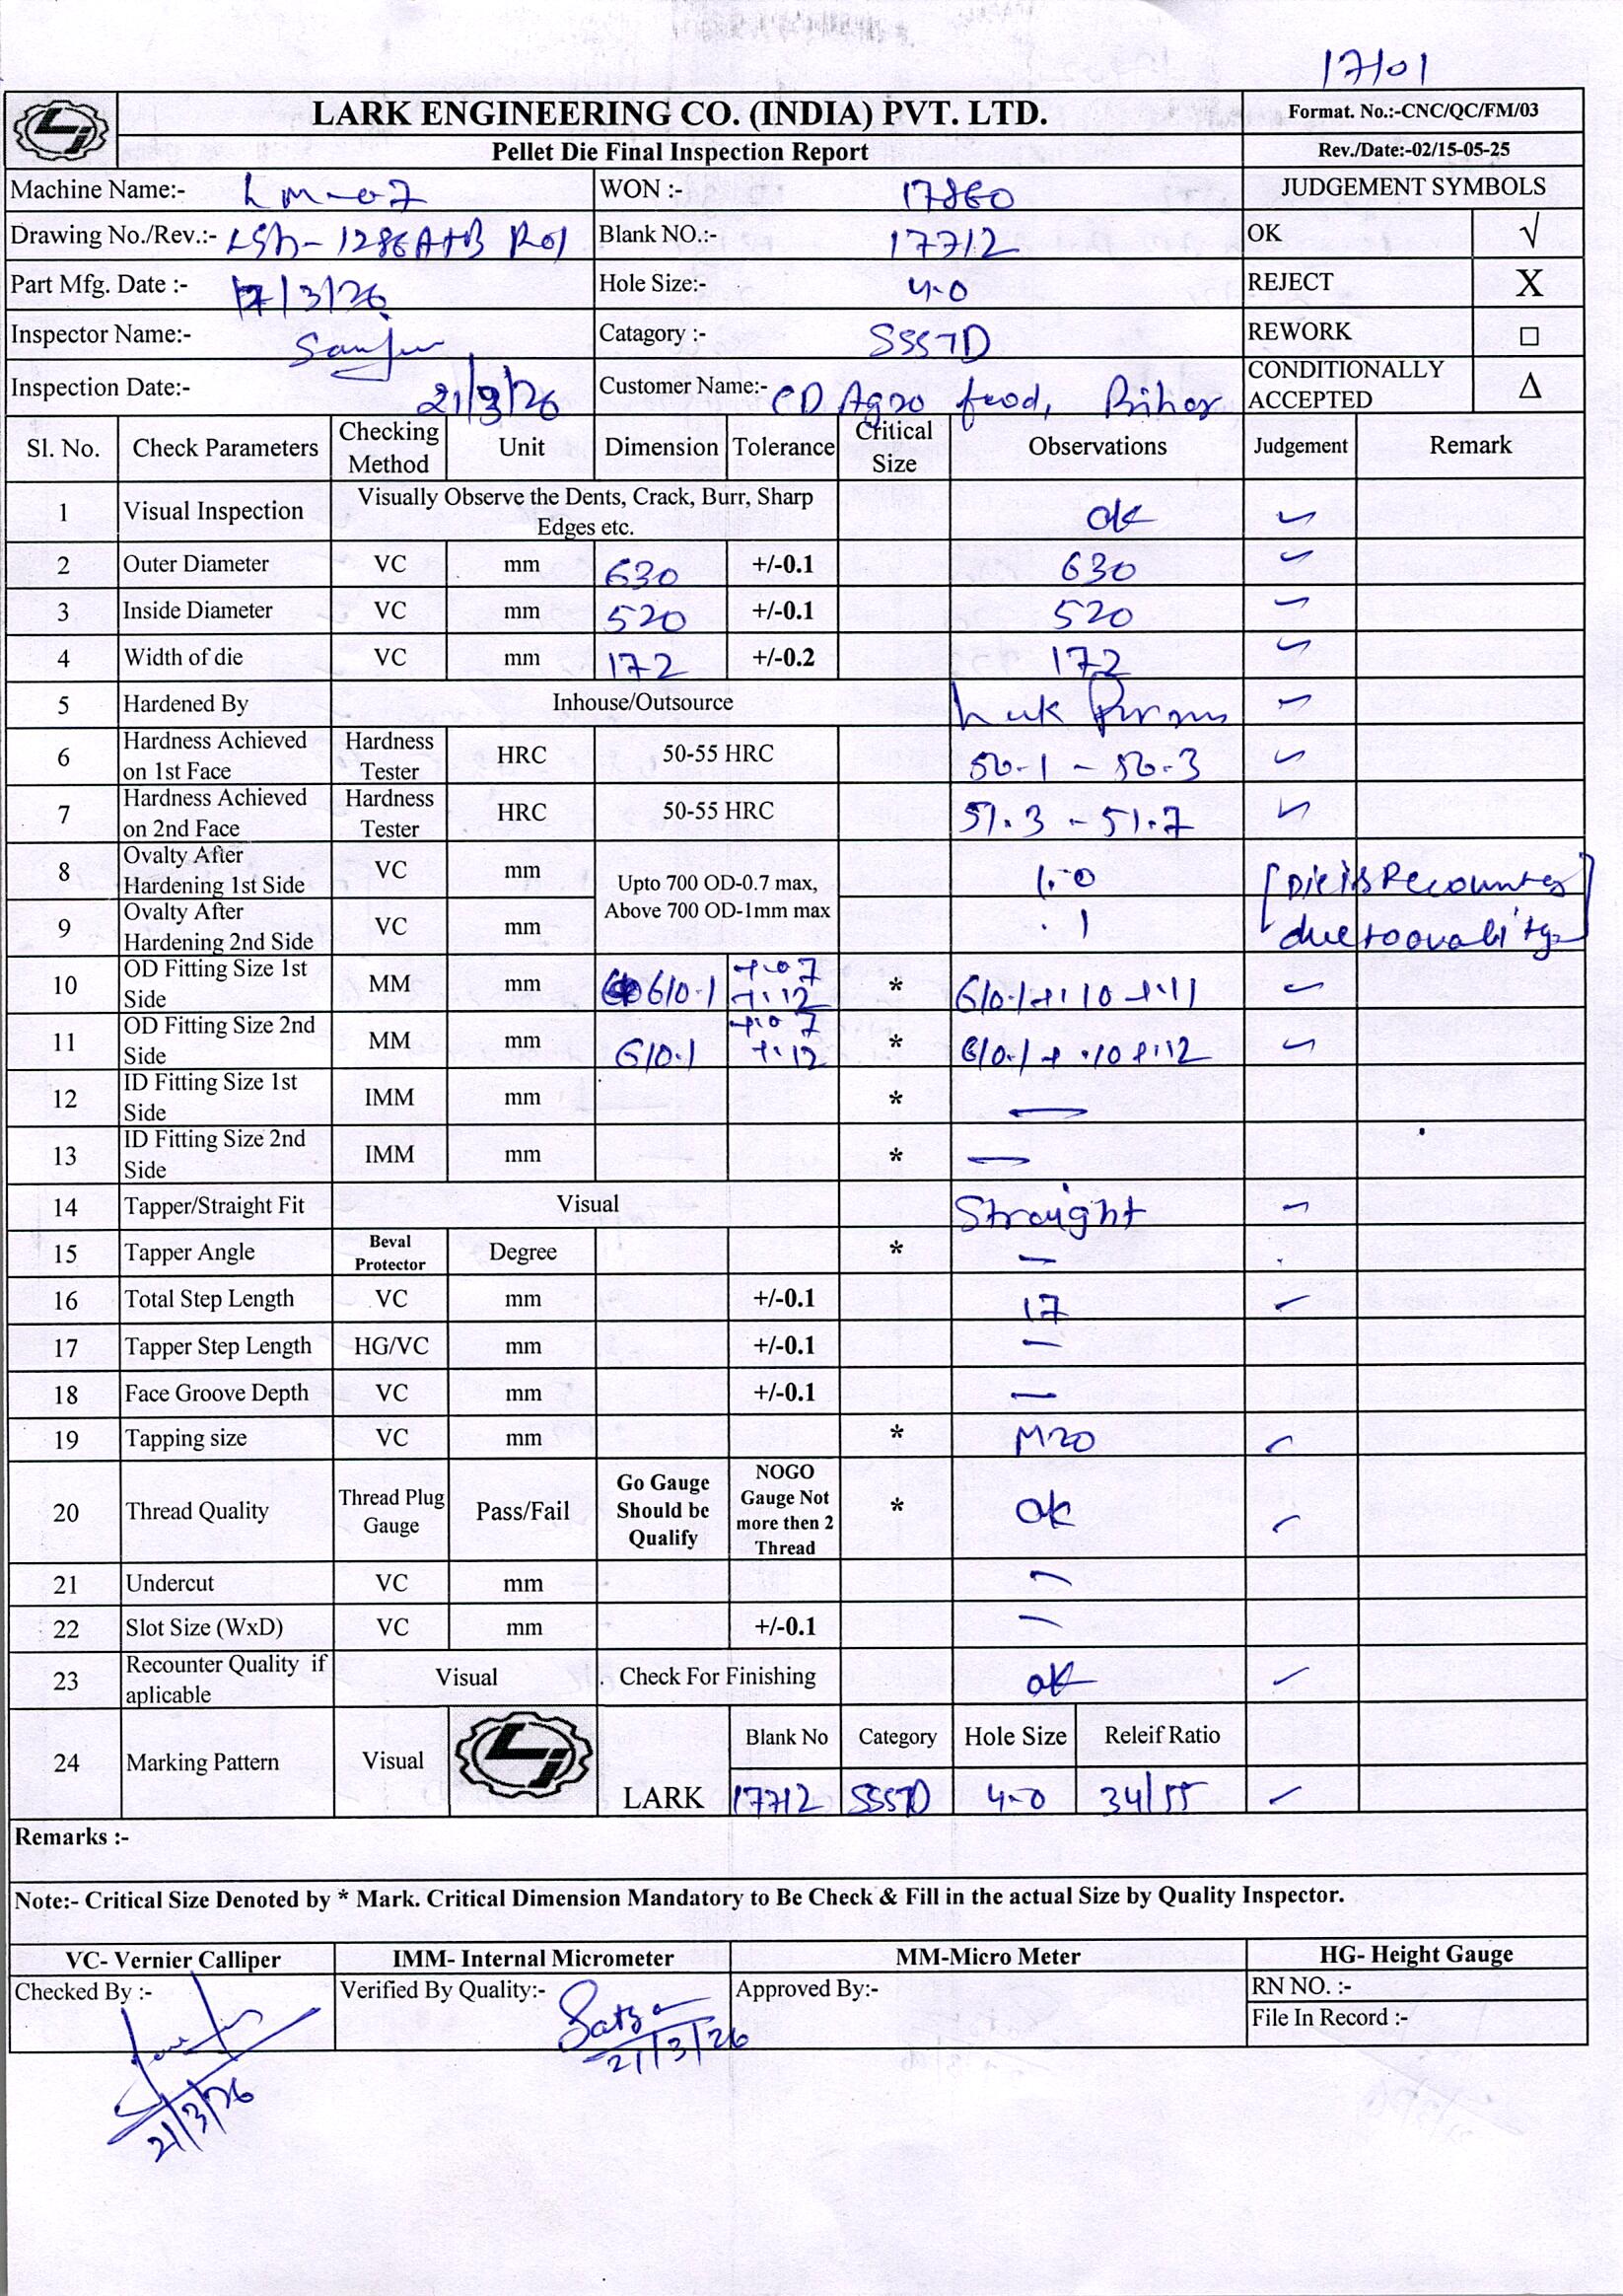 17/01
LARK ENGINEERING CO. (INDIA) PVT. LTD.
Format. No.:-CNC/QC/FM/03
Pellet Die Final Inspection Report
Rev./Date:-02/15-05-25
Machine Name:- LM-07 WON :- 17860 JUDGEMENT SYMBOLS
Drawing No./Rev.:- LSD-1286A+B R01 Blank NO.:- 17712 OK √
Part Mfg. Date :- 17/3/26 Hole Size:- 4.0 REJECT X
Inspector Name:- Catagory :- SSSTD REWORK □
Inspection Date:- 21/3/26 Customer Name:- CD Agro food, Bihar CONDITIONALLY ACCEPTED Δ
Sl. No. Check Parameters Checking Method Unit Dimension Tolerance Critical Size Observations Judgement Remark
1 Visual Inspection Visually Observe the Dents, Crack, Burr, Sharp Edges etc. ok ✓
2 Outer Diameter VC mm 630 +/-0.1 630 ✓
3 Inside Diameter VC mm 520 +/-0.1 520 ✓
4 Width of die VC mm 172 +/-0.2 172 ✓
5 Hardened By Inhouse/Outsource ✓
6 Hardness Achieved on 1st Face Hardness Tester HRC 50-55 HRC 50.1 - 50.3 ✓
7 Hardness Achieved on 2nd Face Hardness Tester HRC 50-55 HRC 51.3 - 51.7 ✓
8 Ovalty After Hardening 1st Side VC mm Upto 700 OD-0.7 max, Above 700 OD-1mm max 1.0 [Die is Recounter
9 Ovalty After Hardening 2nd Side VC mm .1 due to ovality]
10 OD Fitting Size 1st Side MM mm 610.1 +.07 +.12 * 610.1+.10 +.11 ✓
11 OD Fitting Size 2nd Side MM mm 610.1 +.07 +.12 * 610.1 + .10 +.12 ✓
12 ID Fitting Size 1st Side IMM mm * —
13 ID Fitting Size 2nd Side IMM mm * —
14 Tapper/Straight Fit Visual Straight ✓
15 Tapper Angle Beval Protector Degree * —
16 Total Step Length VC mm +/-0.1 17 ✓
17 Tapper Step Length HG/VC mm +/-0.1 —
18 Face Groove Depth VC mm +/-0.1 —
19 Tapping size VC mm * M20 ✓
20 Thread Quality Thread Plug Gauge Pass/Fail Go Gauge Should be Qualify NOGO Gauge Not more then 2 Thread * ok ✓
21 Undercut VC mm —
22 Slot Size (WxD) VC mm +/-0.1 —
23 Recounter Quality if aplicable Visual Check For Finishing ok ✓
24 Marking Pattern Visual LARK Blank No Category Hole Size Releif Ratio
17712 SSSTD 4.0 34/55 ✓
Remarks :-
Note:- Critical Size Denoted by * Mark. Critical Dimension Mandatory to Be Check & Fill in the actual Size by Quality Inspector.
VC- Vernier Calliper IMM- Internal Micrometer MM-Micro Meter HG- Height Gauge
Checked By :- Verified By Quality:- Approved By:- RN NO. :-
File In Record :-
21/3/26
21/3/26